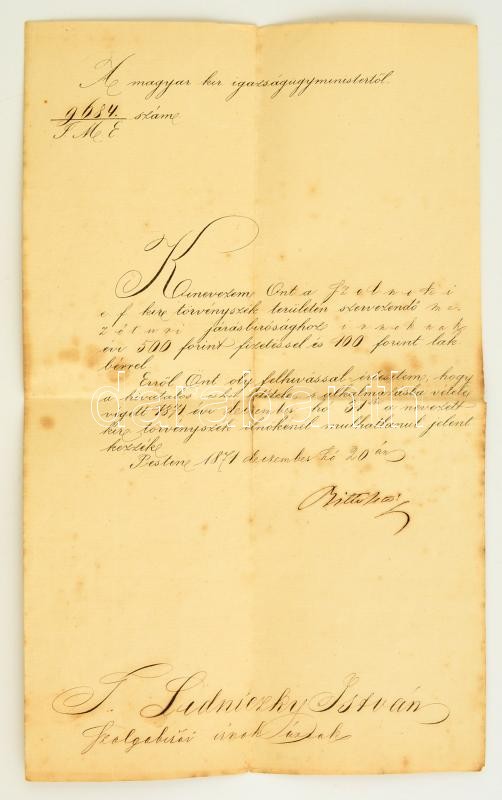 A magyar kir igazságügyministertől.
9684. szám
I. M. E
Kinevezem Önt a
e f. kir. törvényszék területén szervezendő me-
zőturi járásbirósághoz irnoknak
évi 500 forint fizetéssel és 100 forint lak
bérrel.
Erről Önt oly felhivással értesitem, hogy
a hivatalos eskü letétele s alkalmaztatás vétele
végett 1871 évi deczember hó 31 a nevezett
kir törvényszék elnökénél mulhatlanul jelent
kezzék.
Pesten 1871 deczember hó 20 án
Bittó
T. Lidniczky István
Szolgabirói irnok úrnak
darabanth